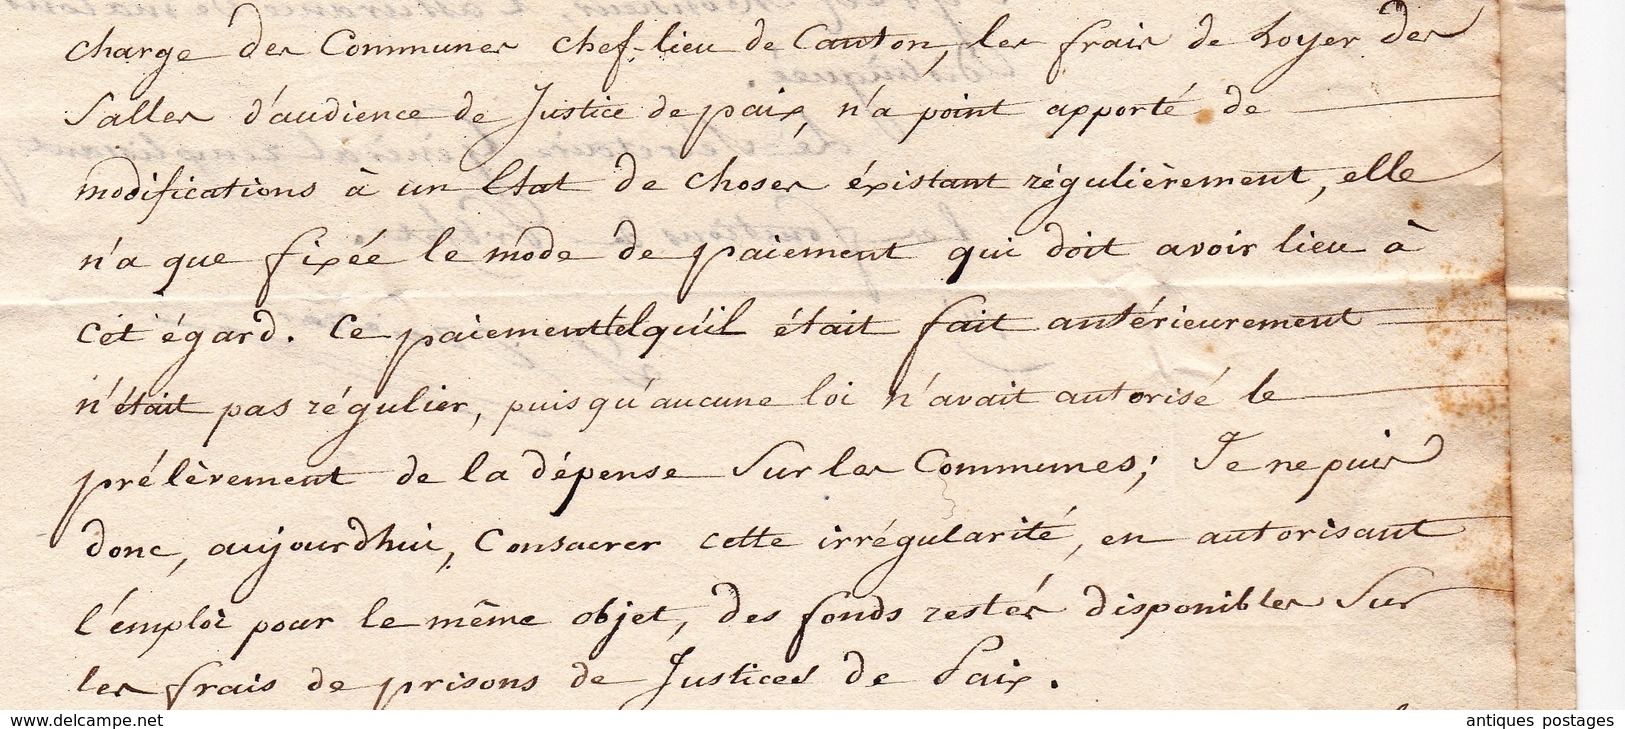 charge des Communes chef-lieu de Canton, les frais de Loyer des
Salles d'audience de Justice de paix, n'a point apporté de
modifications à un Etat de choses éxistant régulièrement, elle
n'a que fixée le mode de paiement qui doit avoir lieu à
cet égard. Ce paiement tel qu'il était fait antérieurement
n'était pas régulier, puisqu'aucune loi n'avait autorisé le
prélèvement de la dépense Sur les Communes; Je ne puis
donc, aujourdhui, Consacrer cette irrégularité, en autorisant
l'emploi pour le même objet, des fonds restés disponibles Sur
les frais de prisons de Justices de Paix.
www.delcampe.net
antiques postages